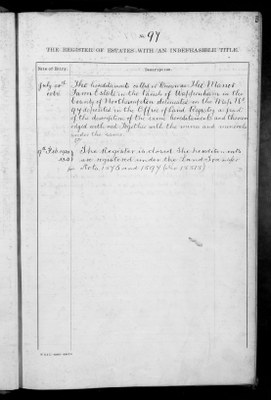 No 97
THE REGISTER OF ESTATES WITH AN INDEFEASIBLE TITLE.
Date of Entry. Description.
July
The hereditaments called or known as The Manor
Farm Estate in the Parish of Wappenham in the
County of Northampton delineated on the Map No
97 deposited in the Office of Land Registry as part
of the description of the same hereditaments and thereon
edged with red Together with the mines and minerals
under the same
The Register is closed The hereditaments
are registered under the Land Transfer